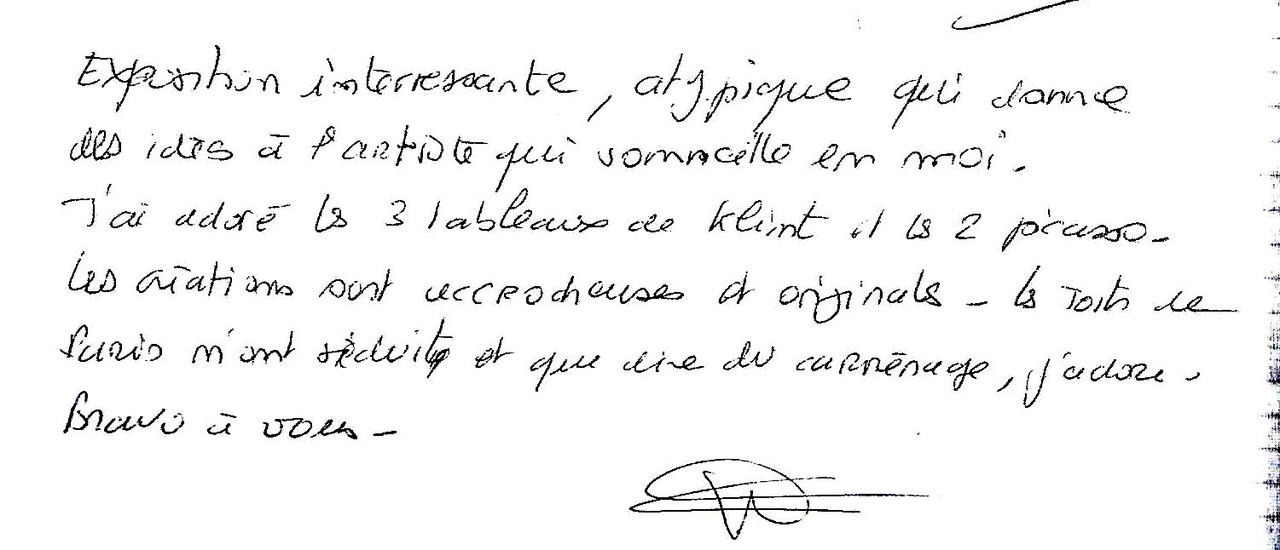 Exposition interressante, atypique qui donne
des idés à l'artiste qui sommeille en moi.
J'ai adoré les 3 tableaux de Klimt et les 2 picasso -
Les créations sont accrocheuses et originales - les Toits de
Paris m'ont séduits et que dire du carrénage, j'adore.
Bravo à vous -